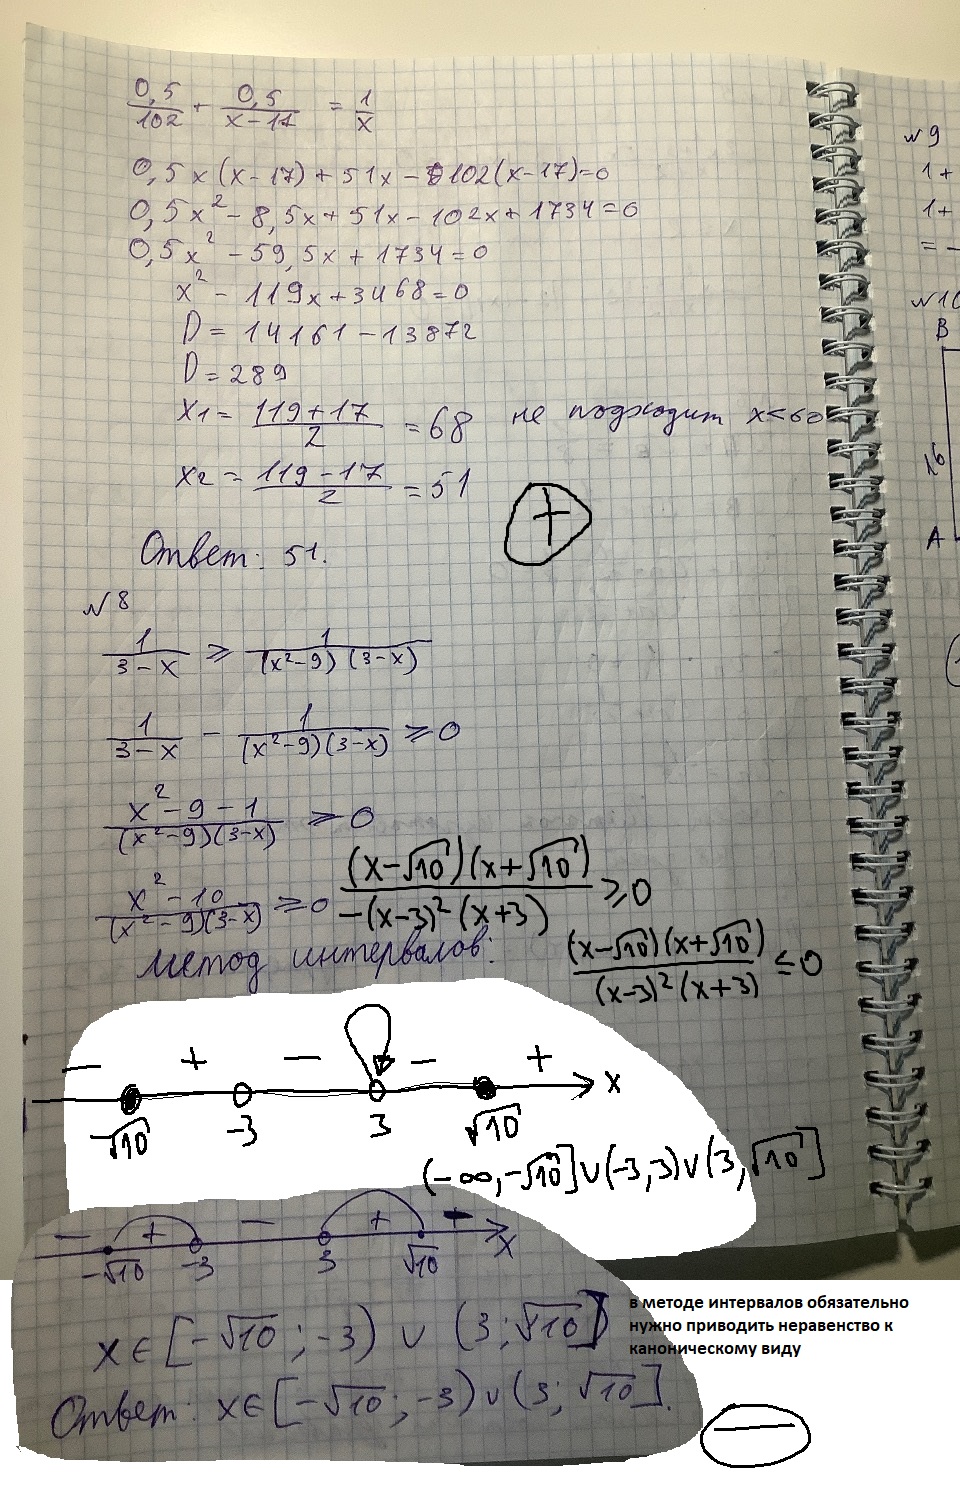 0,5/102 + 0,5/(x-17) = 1/x
0,5x(x-17)+51x-102(x-17)=0
0,5x²-8,5x+51x-102x+1734=0
0,5x²-59,5x+1734=0
x²-119x+3468=0
D=14161-13872
D=289
x1=(119+17)/2=68 не подходит x<60
x2=(119-17)/2=51
+
Ответ: 51.
№8
1/(3-x) ≥ 1/((x²-9)(3-x))
1/(3-x) - 1/((x²-9)(3-x)) ≥0
(x²-9-1)/((x²-9)(3-x)) ≥0
(x²-10)/((x²-9)(3-x)) ≥0 (x-√10)(x+√10)/(-(x-3)²(x+3)) ≥0
метод интервалов: (x-√10)(x+√10)/((x-3)²(x+3)) ≤0
- + - - +
-√10 -3 3 √10 x
(-∞,-√10]∪(-3,3)∪(3,√10]
- + - +
-√10 -3 3 √10 x
x∈[-√10;-3) ∪ (3;√10]
Ответ: x∈[-√10;-3)∪(3;√10].
в методе интервалов обязательно
нужно приводить неравенство к
каноническому виду
−
№9
1+
1+
= -
№10
B
A